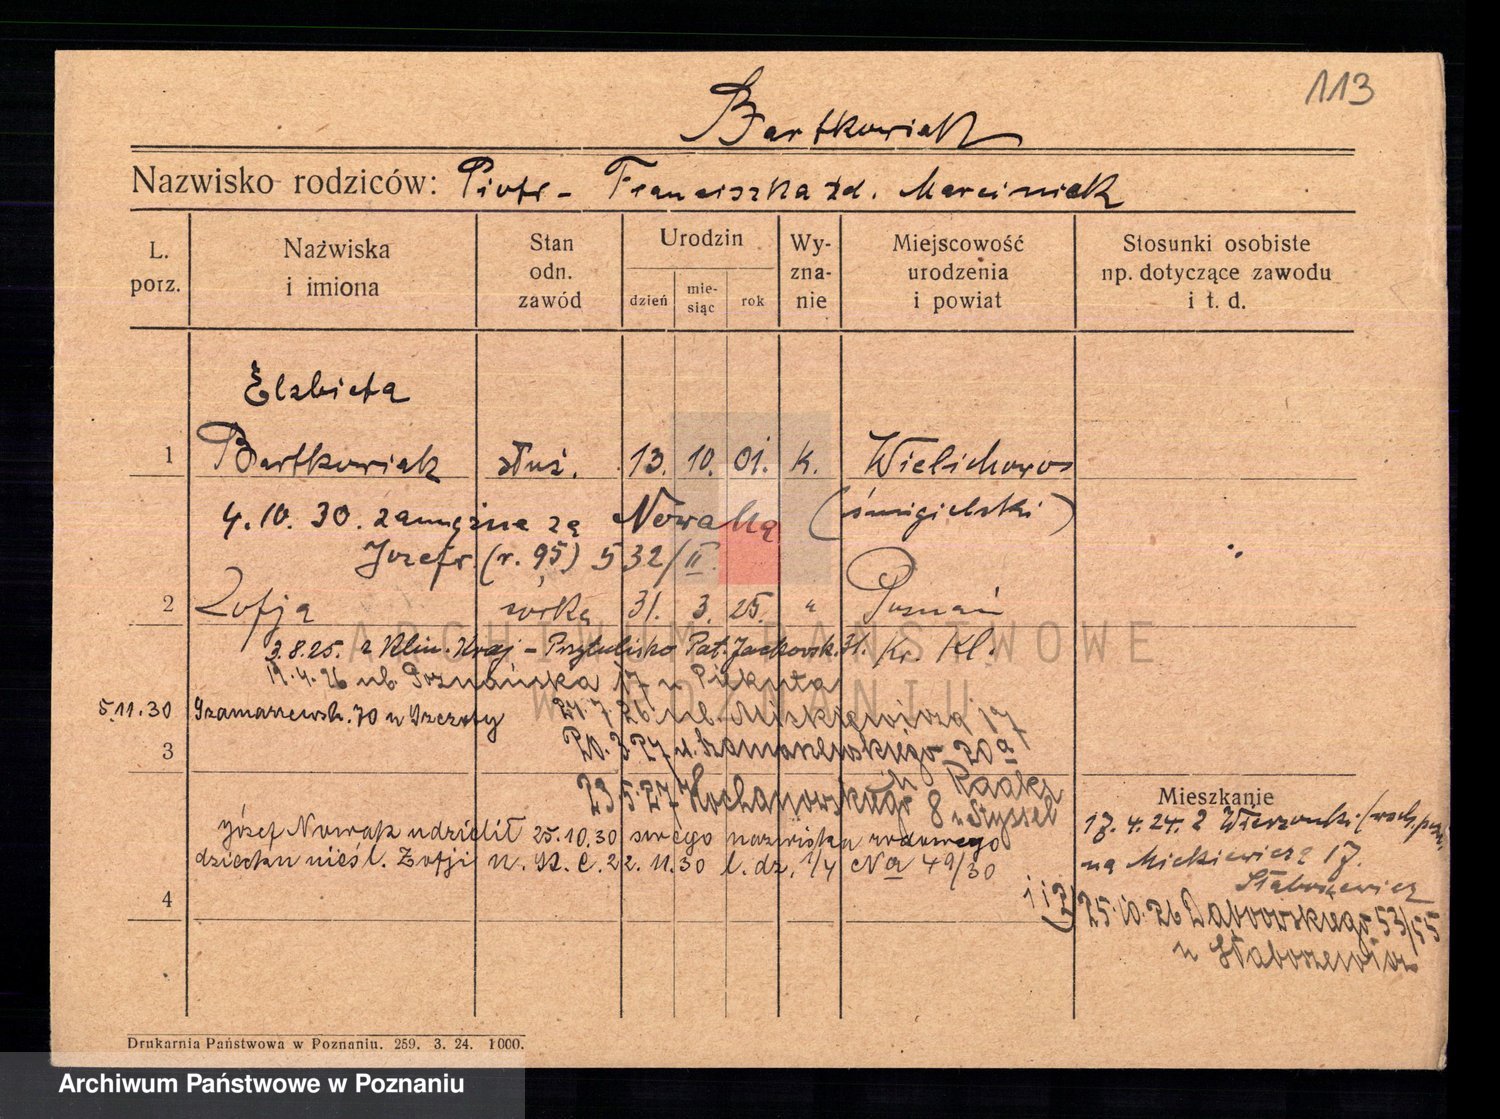 113
Bartkowiak
Nazwisko rodziców: Piotr - Franciszka zd. Marciniak
L. porz.
Nazwiska i imiona
Stan odn. zawód
Urodzin
dzień
mie-siąc
rok
Wy-zna-nie
Miejscowość urodzenia i powiat
Stosunki osobiste np. dotyczące zawodu i t. d.
Elzbieta
1 Bartkowiak służ. 13. 10. 01. k. Wielichowo
4.10.30. zamężna za Nowaka (śmigielski)
Józefa (r. 95) 532/II.
2 Zofja córka 31. 3. 25. " Poznań
3.8.25. z Klin. Kraj - Przytulisko Pat. Jackowsk. 31. Kr. Kl.
19.4.26 ub. Poznańska 17 u Piekuta
5.11.30 Szamarzewsk. 70 u 24.7.26. ul. Mickiewicza 17
20.3.27 u. Szamarzewskiego 20a
3 u Raaka
23.5.27 Kochanowskiego 8 u Styssel
Józef Nowak udzielił 25.10.30 swego nazwiska rodowego
dziecku nieśl. Zofji U. S. C. 22.11.30 l. dz. 1/4 Na 49/30
4
Mieszkanie
17.4.24. z
na Mickiewicza 17.
Słaboszewicz
1 i 2) 25.10.26 Dąbrowskiego 53/55
u Słaboszewicz
Drukarnia Państwowa w Poznaniu. 259. 3. 24. 1000.
ARCHIWUM PAŃSTWOWE
W POZNANIU
Archiwum Państwowe w Poznaniu